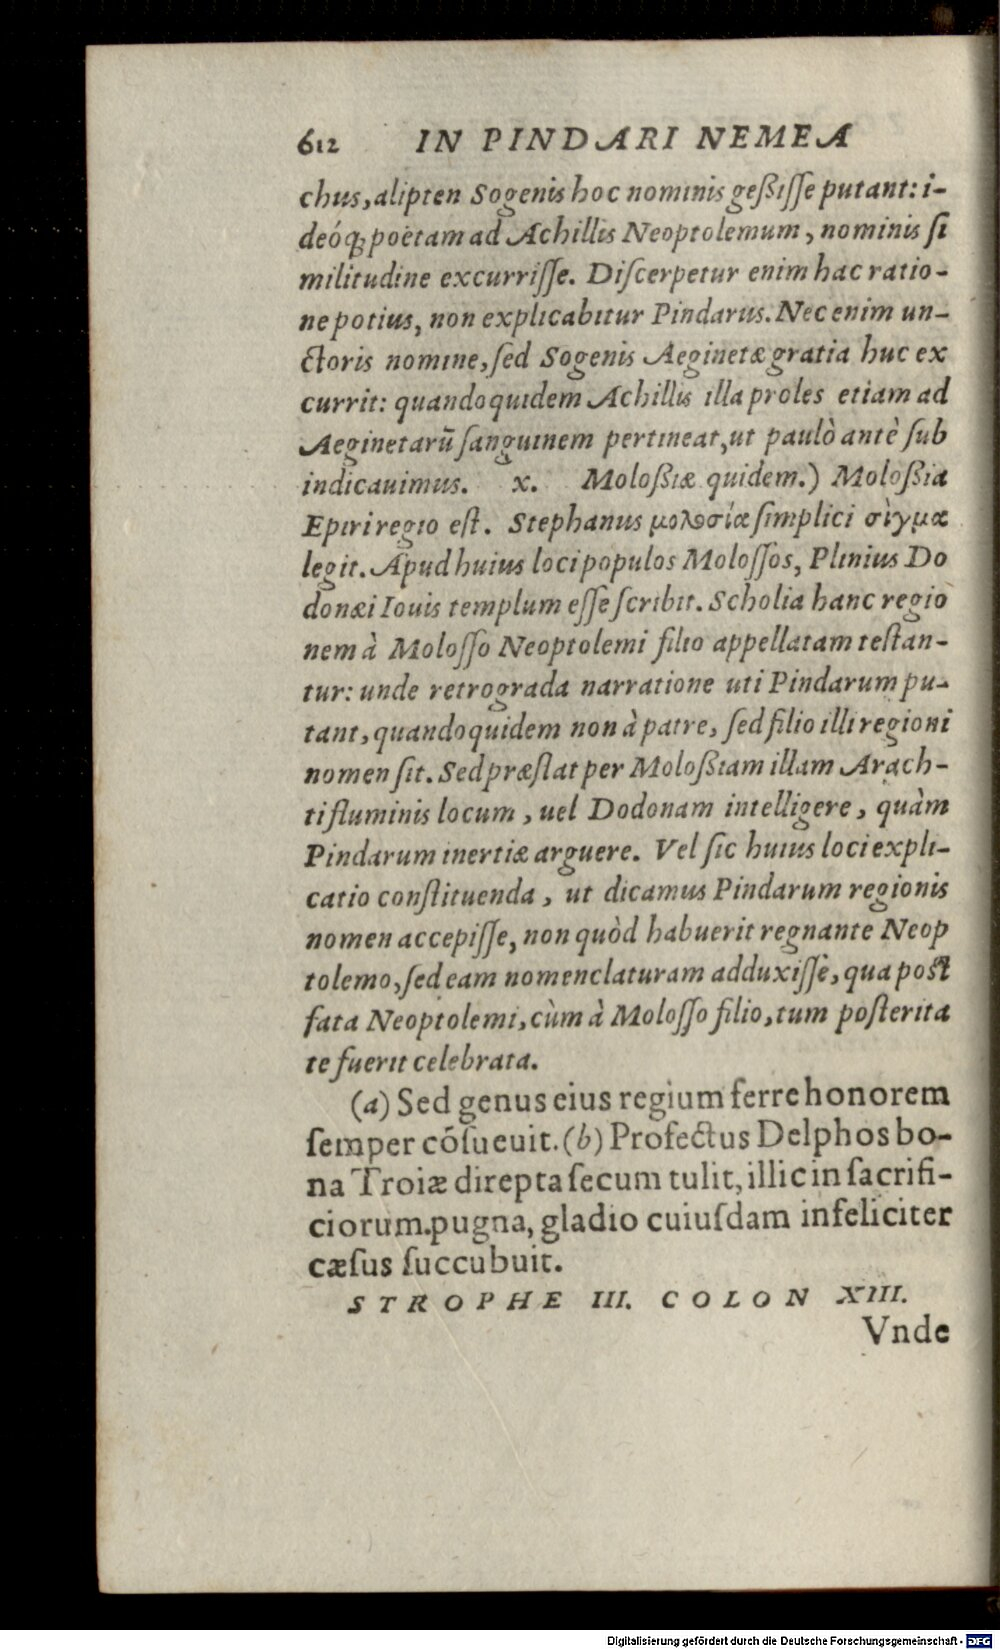 612 IN PINDARI NEMEA
chus, alipten Sogenis hoc nominis geßisſe putant: i-
deóq́ꝫ poëtam ad Achillis Neoptolemum, nominis ſi
militudine excurriſſe. Diſcerpetur enim hac ratio-
ne potius, non explicabitur Pindarus. Nec enim un-
ctoris nomine, ſed Sogenis Aeginetæ gratia huc ex
currit: quandoquidem Achillis illa proles etiam ad
Aeginetarū ſanguinem pertineat, ut paulò antè ſub
indicauimus. x. Moloßiæ quidem.) Moloßia
Epiri regio eſt. Stephanus μολοσία ſimplici σίγμα
legit. Apud huius loci populos Moloſſos, Plinius Do
donæi Iouis templum eſſe ſcribit. Scholia hanc regiō
nem à Moloſſo Neoptolemi filio appellatam teſtan-
tur: unde retrograda narratione uti Pindarum pu-
tant, quandoquidem non à patre, ſed filio illi regioni
nomen ſit. Sed præſtat per Moloßiam illam Arach-
ti fluminis locum, uel Dodonam intelligere, quàm
Pindarum inertiæ arguere. Vel ſic huius loci expli-
catio conſtituenda, ut dicamus Pindarum regionis
nomen accepiſſe, non quòd habuerit regnante Neop
tolemo, ſed eam nomenclaturam adduxiſſe, qua poſt
fata Neoptolemi, cùm à Moloſſo filio, tum poſterita
te fuerit celebrata.
(a) Sed genus eius regium ferre honorem
ſemper cōſueuit. (b) Profectus Delphos bo-
na Troiæ direpta ſecum tulit, illic in ſacrifi-
ciorum.pugna, gladio cuiuſdam infeliciter
cæſus ſuccubuit.
STROPHE III. COLON XIII.
Vnde
Digitalisierung gefördert durch die Deutsche Forschungsgemeinschaft - DFG